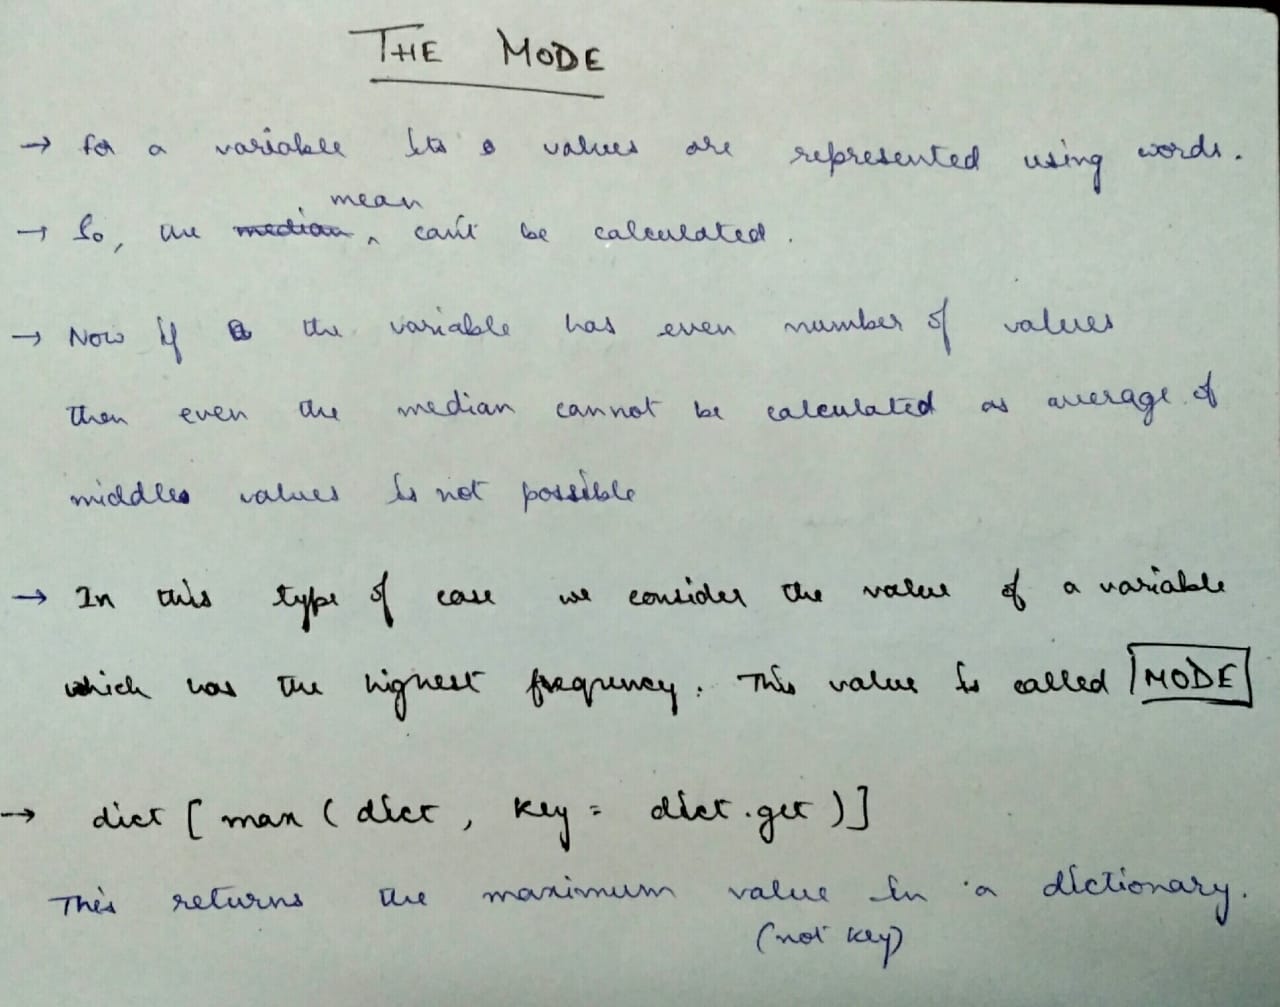 THE MODE
→ for a variable its values are represented using words.
mean
→ So, the median ‸ can't be calculated.
→ Now if the variable has even number of values
then even the median cannot be calculated as average of
middles values is not possible
→ In this type of case we consider the value of a variable
which has the highest frequency. This value is called MODE
→ dict [ max ( dict , key = dict.get ) ]
This returns the maximum value in a dictionary.
(not key)